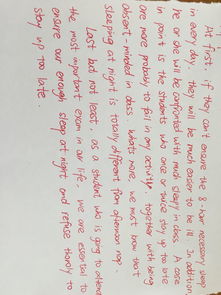 At first, if they can't ensure the 8-hour necessary sleep
in every day, they will be much easier to be ill. In addition,
he or she will be confronted with much sleepy in class. A case
in point is the students who once or twice stay up to late
are more probably to fail in any activity, together with being
absent-minded in class. What's more, we must know that
sleeping at night is totally different from afternoon nap.
Last but not least, as a student who is going to attend
the most important exam in our life, we are essential to
ensure our enough sleep at night and refuse thorly to
stay up too late.